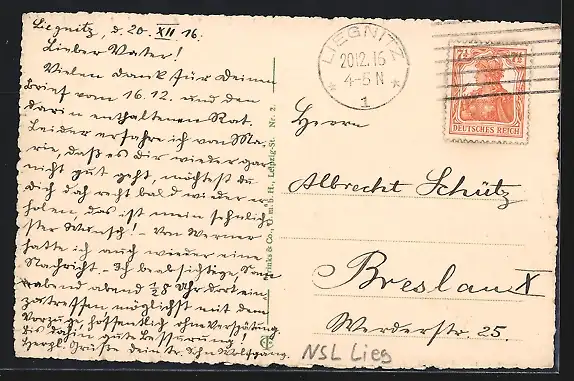 Liegnitz, d. 20. XII 16.
Lieber Vater!
Vielen Dank für Deinen
Brief vom 16.12. und den
darin enthaltenen Rat.
Leider erfahre ich von Ma-
rie, daß es dir wieder gar
nicht gut geht, möchtest du
dich doch recht bald wieder er-
holen, das ist mein sehnlich-
ster Wunsch! - Von Werner
hatte ich auch wieder eine
Nachricht. - Ich beabsichtige, Sonn-
abend abend ½8 Uhr dort ein-
zutreffen möglichst mit dem
Vorzuge hoffentlich ohne Verspätung.
Bis dahin gute Besserung!
Herzl. Grüße dein tr. Sohn Wolfgang.
Trinks & Co., G. m. b. H., Leipzig-St. Nr. 2.
LIEGNITZ
20.12.16
4-5 N
* 1 *
7½ 7½
DEUTSCHES REICH
Herrn
Albrecht Schütz
Breslau X
Werderstr. 25.
NSL Lieg